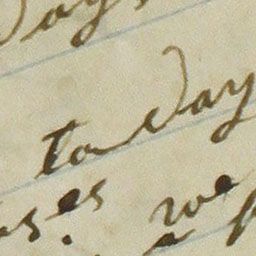 day,
to day
ses we